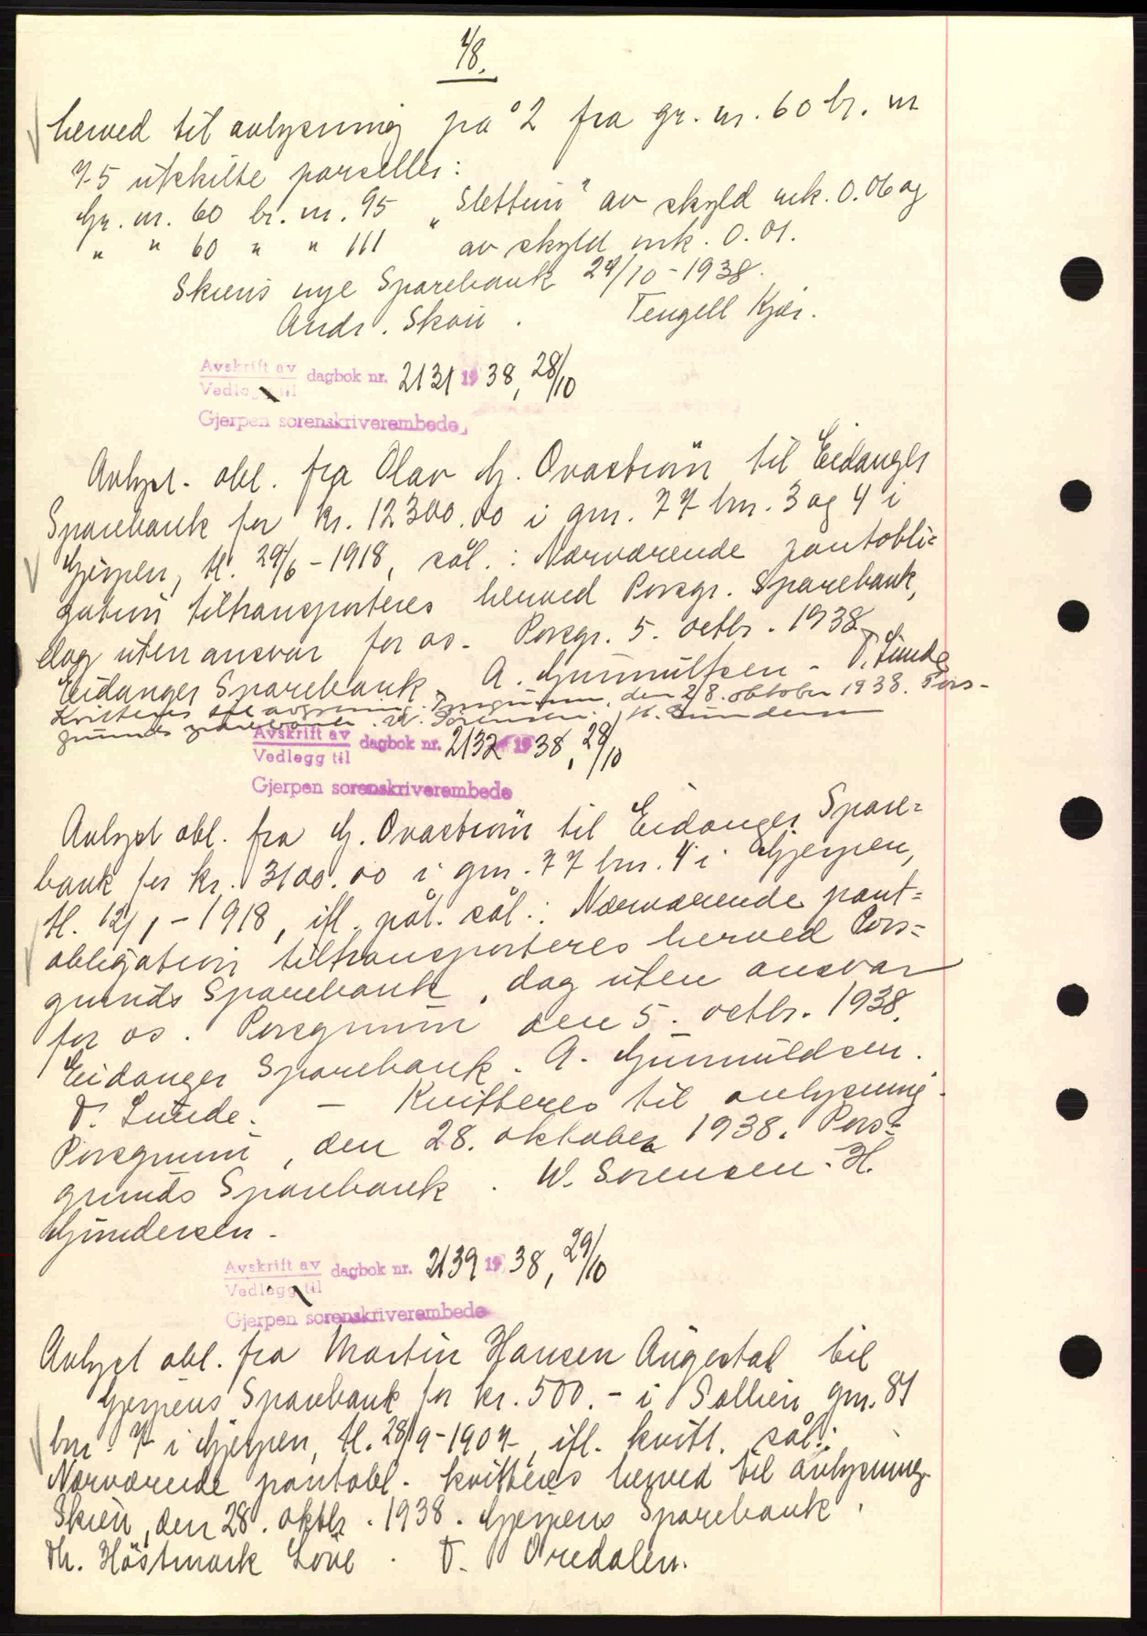 48.
herved til avlysning på 2 fra gr. nr. 60 br. nr
75 utskilte parseller:
Gr. nr. 60 br. nr. 95 "Slettun" av skyld mk. 0.06 og
" " 60 " " 111 av skyld mk. 0.01.
Skiens nye Sparebank 29/10-1938.
Andr. Skau. Tengell Kjær.
Avskrift av
Vedlegg til dagbok nr. 2131 1938, 28/10
Gjerpen sorenskriverembede
Avlyst obl. fra Olav G. Ovastrøm til Eidanger
Sparebank for kr. 12300.00 i gnr. 77 bnr. 3 og 4 i
Gjerpen, tl. 29/6-1918, sål.: Nærværende pantobli=
gation tiltransporteres herved Porsgr. Sparebank,
dog uten ansvar for os. Porsgr. 5. octbr. 1938
Eidanger Sparebank. A. Gunnultsen - T. Lunde
Kvitteres til avlysning. Porsgrunn, den 28. oktober 1938. Pors-
grunds Sparebank. W. Sørensen. H. Gundersen
Avskrift av
Vedlegg til dagbok nr. 2132 1938, 28/10
Gjerpen sorenskriverembede
Avlyst obl. fra G. Ovastrøm til Eidanger Spare=
bank for kr. 3100.00 i gnr. 77 bnr. 4 i Gjerpen,
tl. 12/1-1918, ifl. påt. sål.: Nærværende pant=
obligation tiltransporteres herved Pors=
grunds Sparebank, dog uten ansvar
for os. Porsgrunn den 5. octbr. 1938.
Eidanger Sparebank. A. Gunnuldsen.
T. Lunde. - Kvitteres til avlysning.
Porsgrunn, den 28. oktober 1938. Pors=
grunds Sparebank. W. Sørensen. H.
Gundersen.
Avskrift av
Vedlegg til dagbok nr. 2139 1938, 29/10
Gjerpen sorenskriverembede
Avlyst obl. fra Martin Hansen Augestad til
Gjerpens Sparebank for kr. 500.- i Sollien gnr. 81
bnr. 7 i Gjerpen, tl. 28/9-1907, ifl. kvitt. sål.:
Nærværende pantobl. kvitteres herved til avlysning.
Skien, den 28. oktbr. 1938. Gjerpens Sparebank.
Th. Höstmark Love. T. Oredalen.